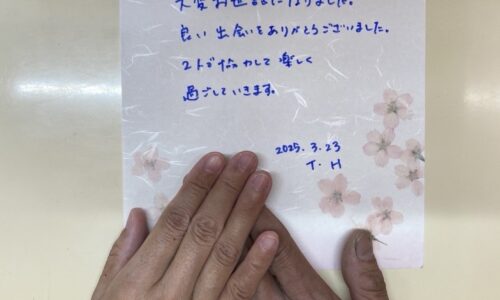 大変お世話になりました。
良い出会いをありがとうございました。
2人で協力して楽しく
過ごしていきます。
2025. 3. 23
T. H